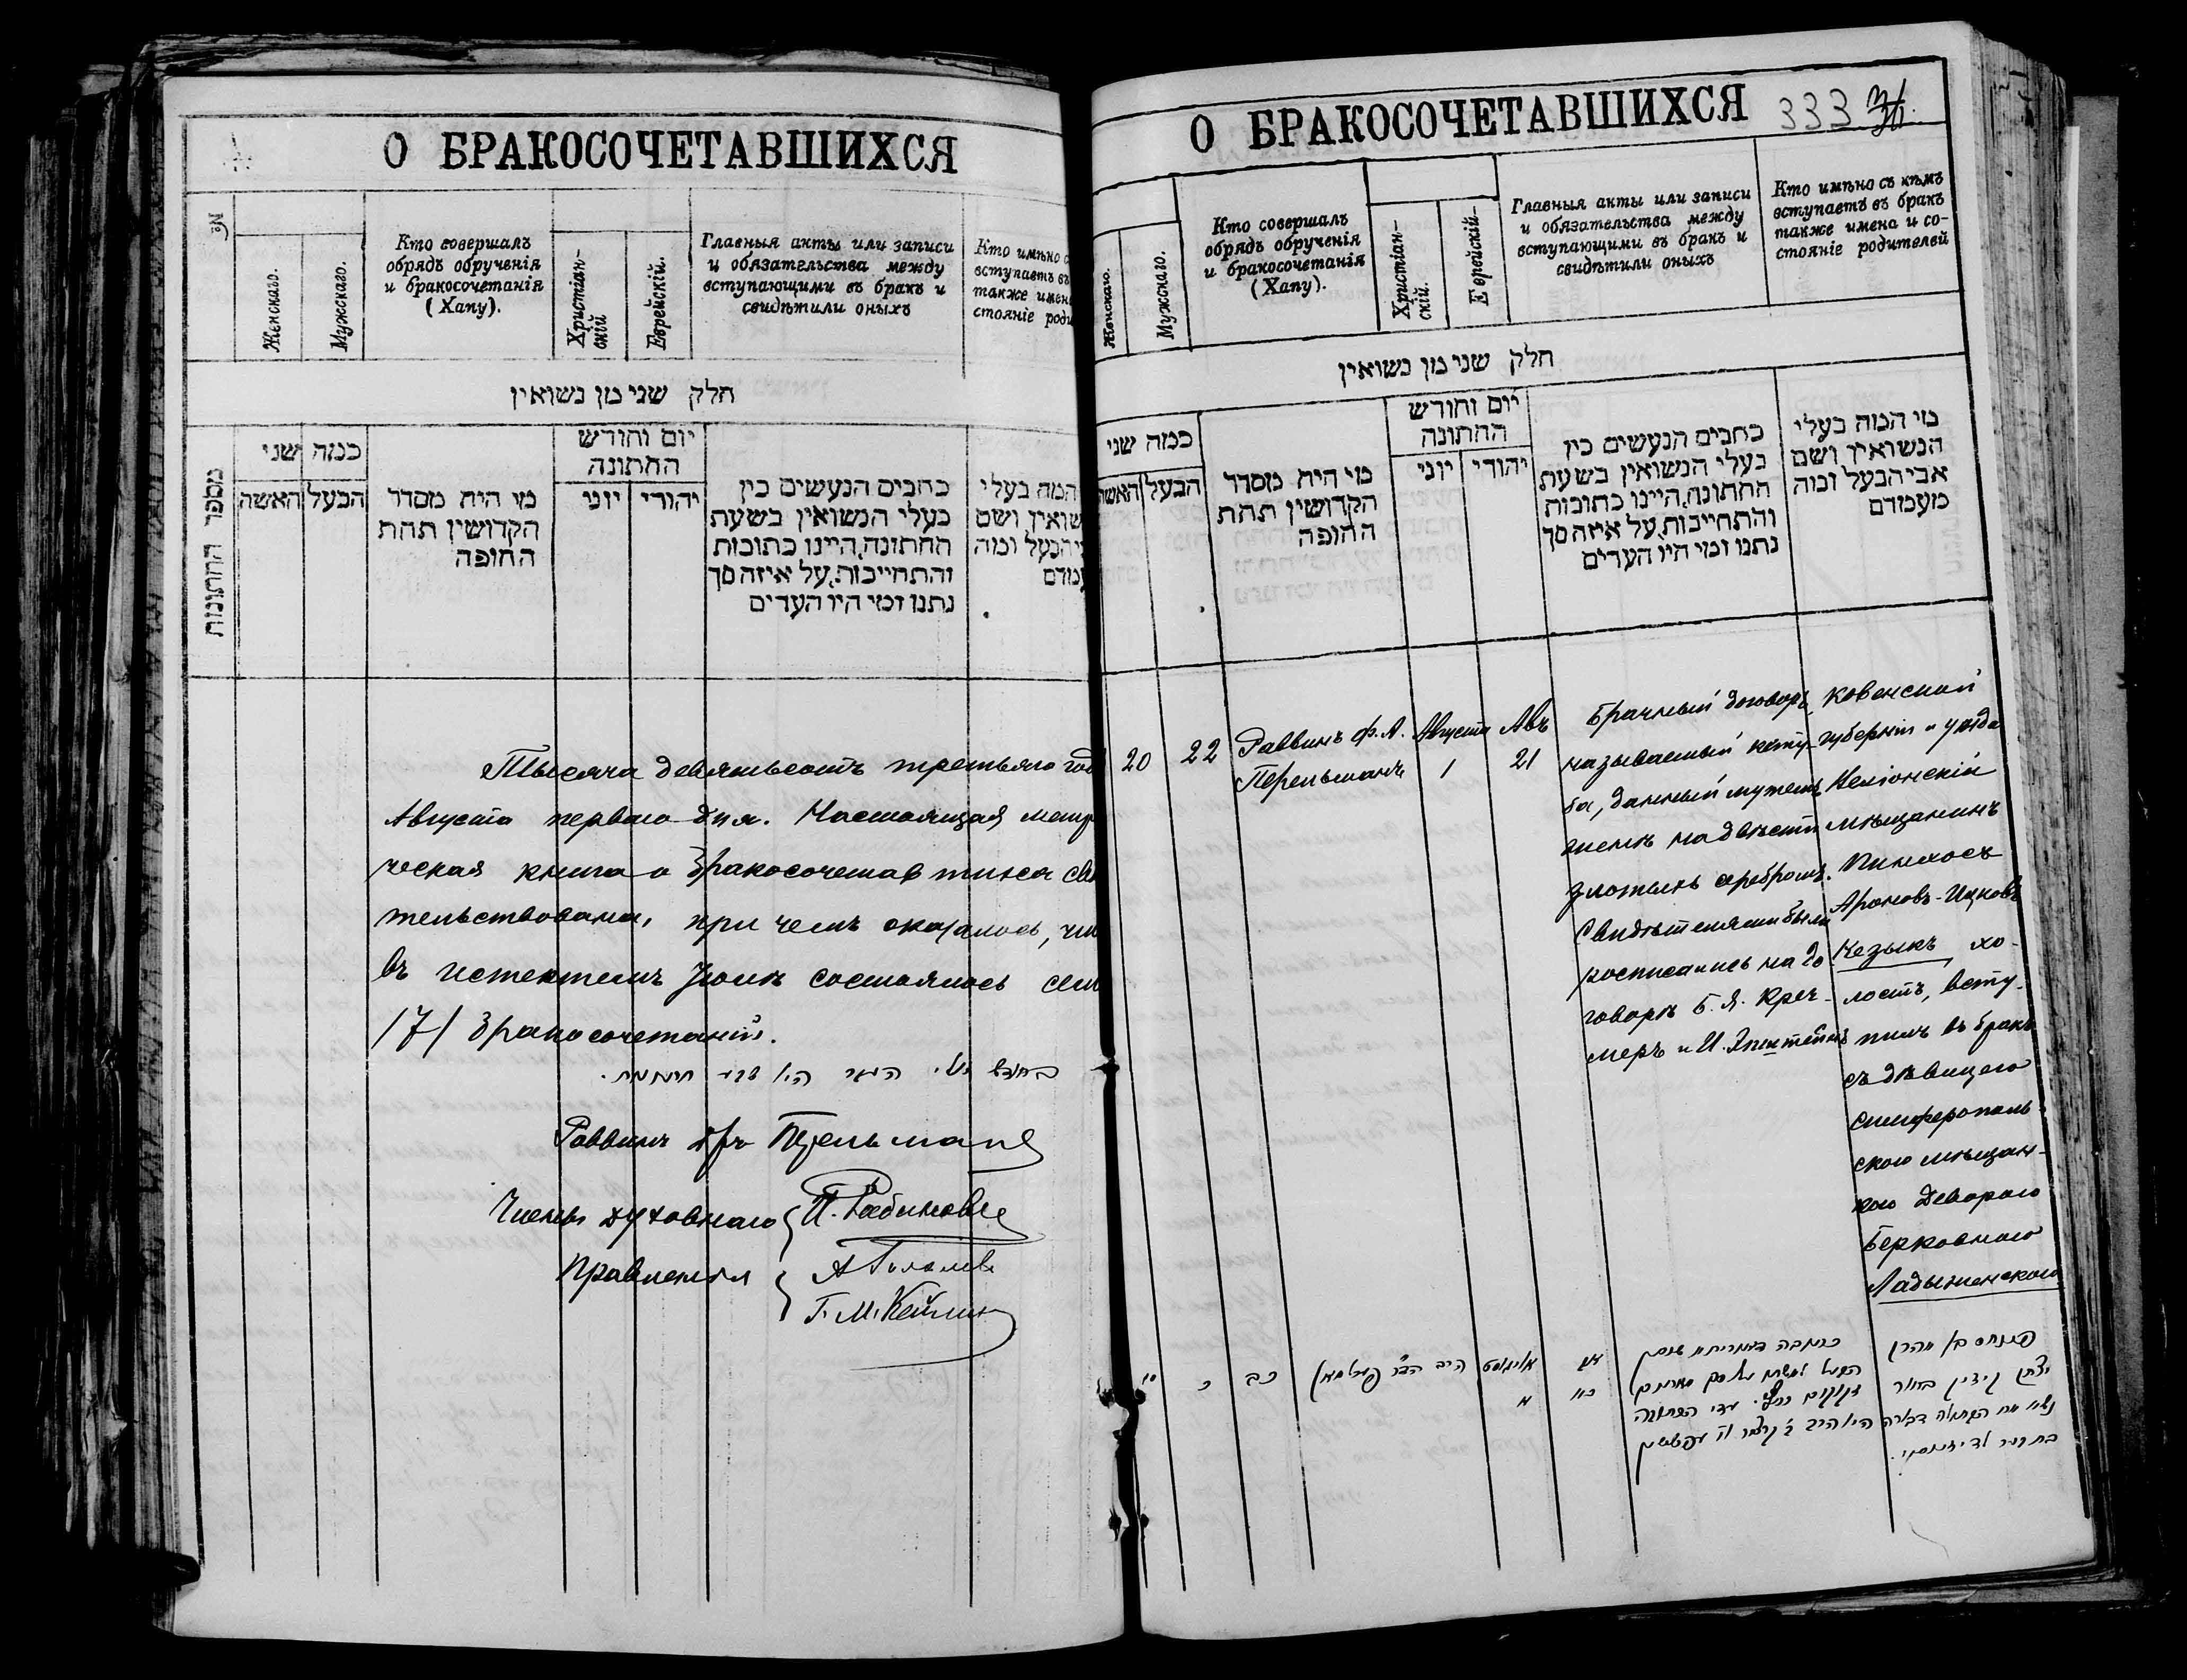 О БРАКОСОЧЕТАВШИХСЯ
№
Женскаго.
Мужскаго.
Кто совершалъ
обрядъ обрученія
и бракосочетанія
(Хапу).
Христіан-
скій
Еврейскій.
Главныя акты или записи
и обязательства между
вступающими въ бракъ и
свидѣтили оныхъ
Кто имѣно с
вступаетъ въ
также имен
стояніе роди
חלק שני מן נשואין
מספר החתונות
כמה שני
האשה
הבעל
מי היה מסדר
הקדושין תחת
החופה
יום וחורש
החתונה
יוני
יהודי
כתבים הנעשים בין
בעלי הנשואין בשעת
החתונה, היינו כתובות
והתחייבות, על איזה סך
נתנו ומי היו העדים
המה בעלי
שואין ושם
יהבעל ומה
עמדם
Тысяча девятьсотъ третьяго год
Августа перваго дня. Настоящая метр
ческая книга о бракосочетавшихся сви
тельствована, при чемъ оказалось, что
въ истекшемъ Іюлѣ состоялось сем
/7/ бракосочетаній.
Раввинъ Д-ръ Перельманъ
Члены духовнаго { И. Рабиновичъ
Правленія
Г. М. Кейлин
О БРАКОСОЧЕТАВШИХСЯ 333
Женскаго.
Мужскаго.
Кто совершалъ
обрядъ обрученія
и бракосочетанія
(Хапу).
Христіан-
скій.
Еврейскій
Главныя акты или записи
и обязательства между
вступающими въ бракъ и
свидѣтили оныхъ
Кто имѣно съ кѣмъ
вступаетъ въ бракъ
также имена и со-
стояніе родителей
חלק שני מן נשואין
כמה שני
האשה
הבעל
מי היה מסדר
הקדושין תחת
החופה
יום וחורש
החתונה
יוני
יהודי
כתבים הנעשים בין
בעלי הנשואין בשעת
החתונה, היינו כתובות
והתחייבות, על איזה סך
נתנו ומי היו העדים
מי המה בעלי
הנשואין ושם
אבי הבעל ומה
מעמדם
20
22
Раввинъ Ф. А.
Перельманъ
Августа
1
Авъ
21
Брачный договоръ,
называемый кету-
ба, данный мужемъ
женѣ на двѣсти
злотыхъ серебромъ.
Свидѣтелями были
росписались на до-
говорѣ Б. Я. Креч-
меръ и И. Эпштейнъ
Ковенской
губерніи и уѣзда
мѣщанинъ
Пинхосъ
Ароновъ-Ицковъ
Кезыкъ, хо-
лостъ, всту-
пилъ въ бракъ
съ дѣвицею
симферополь-
скою мѣщан-
кою Деворою
Берковною
Ладыженскою